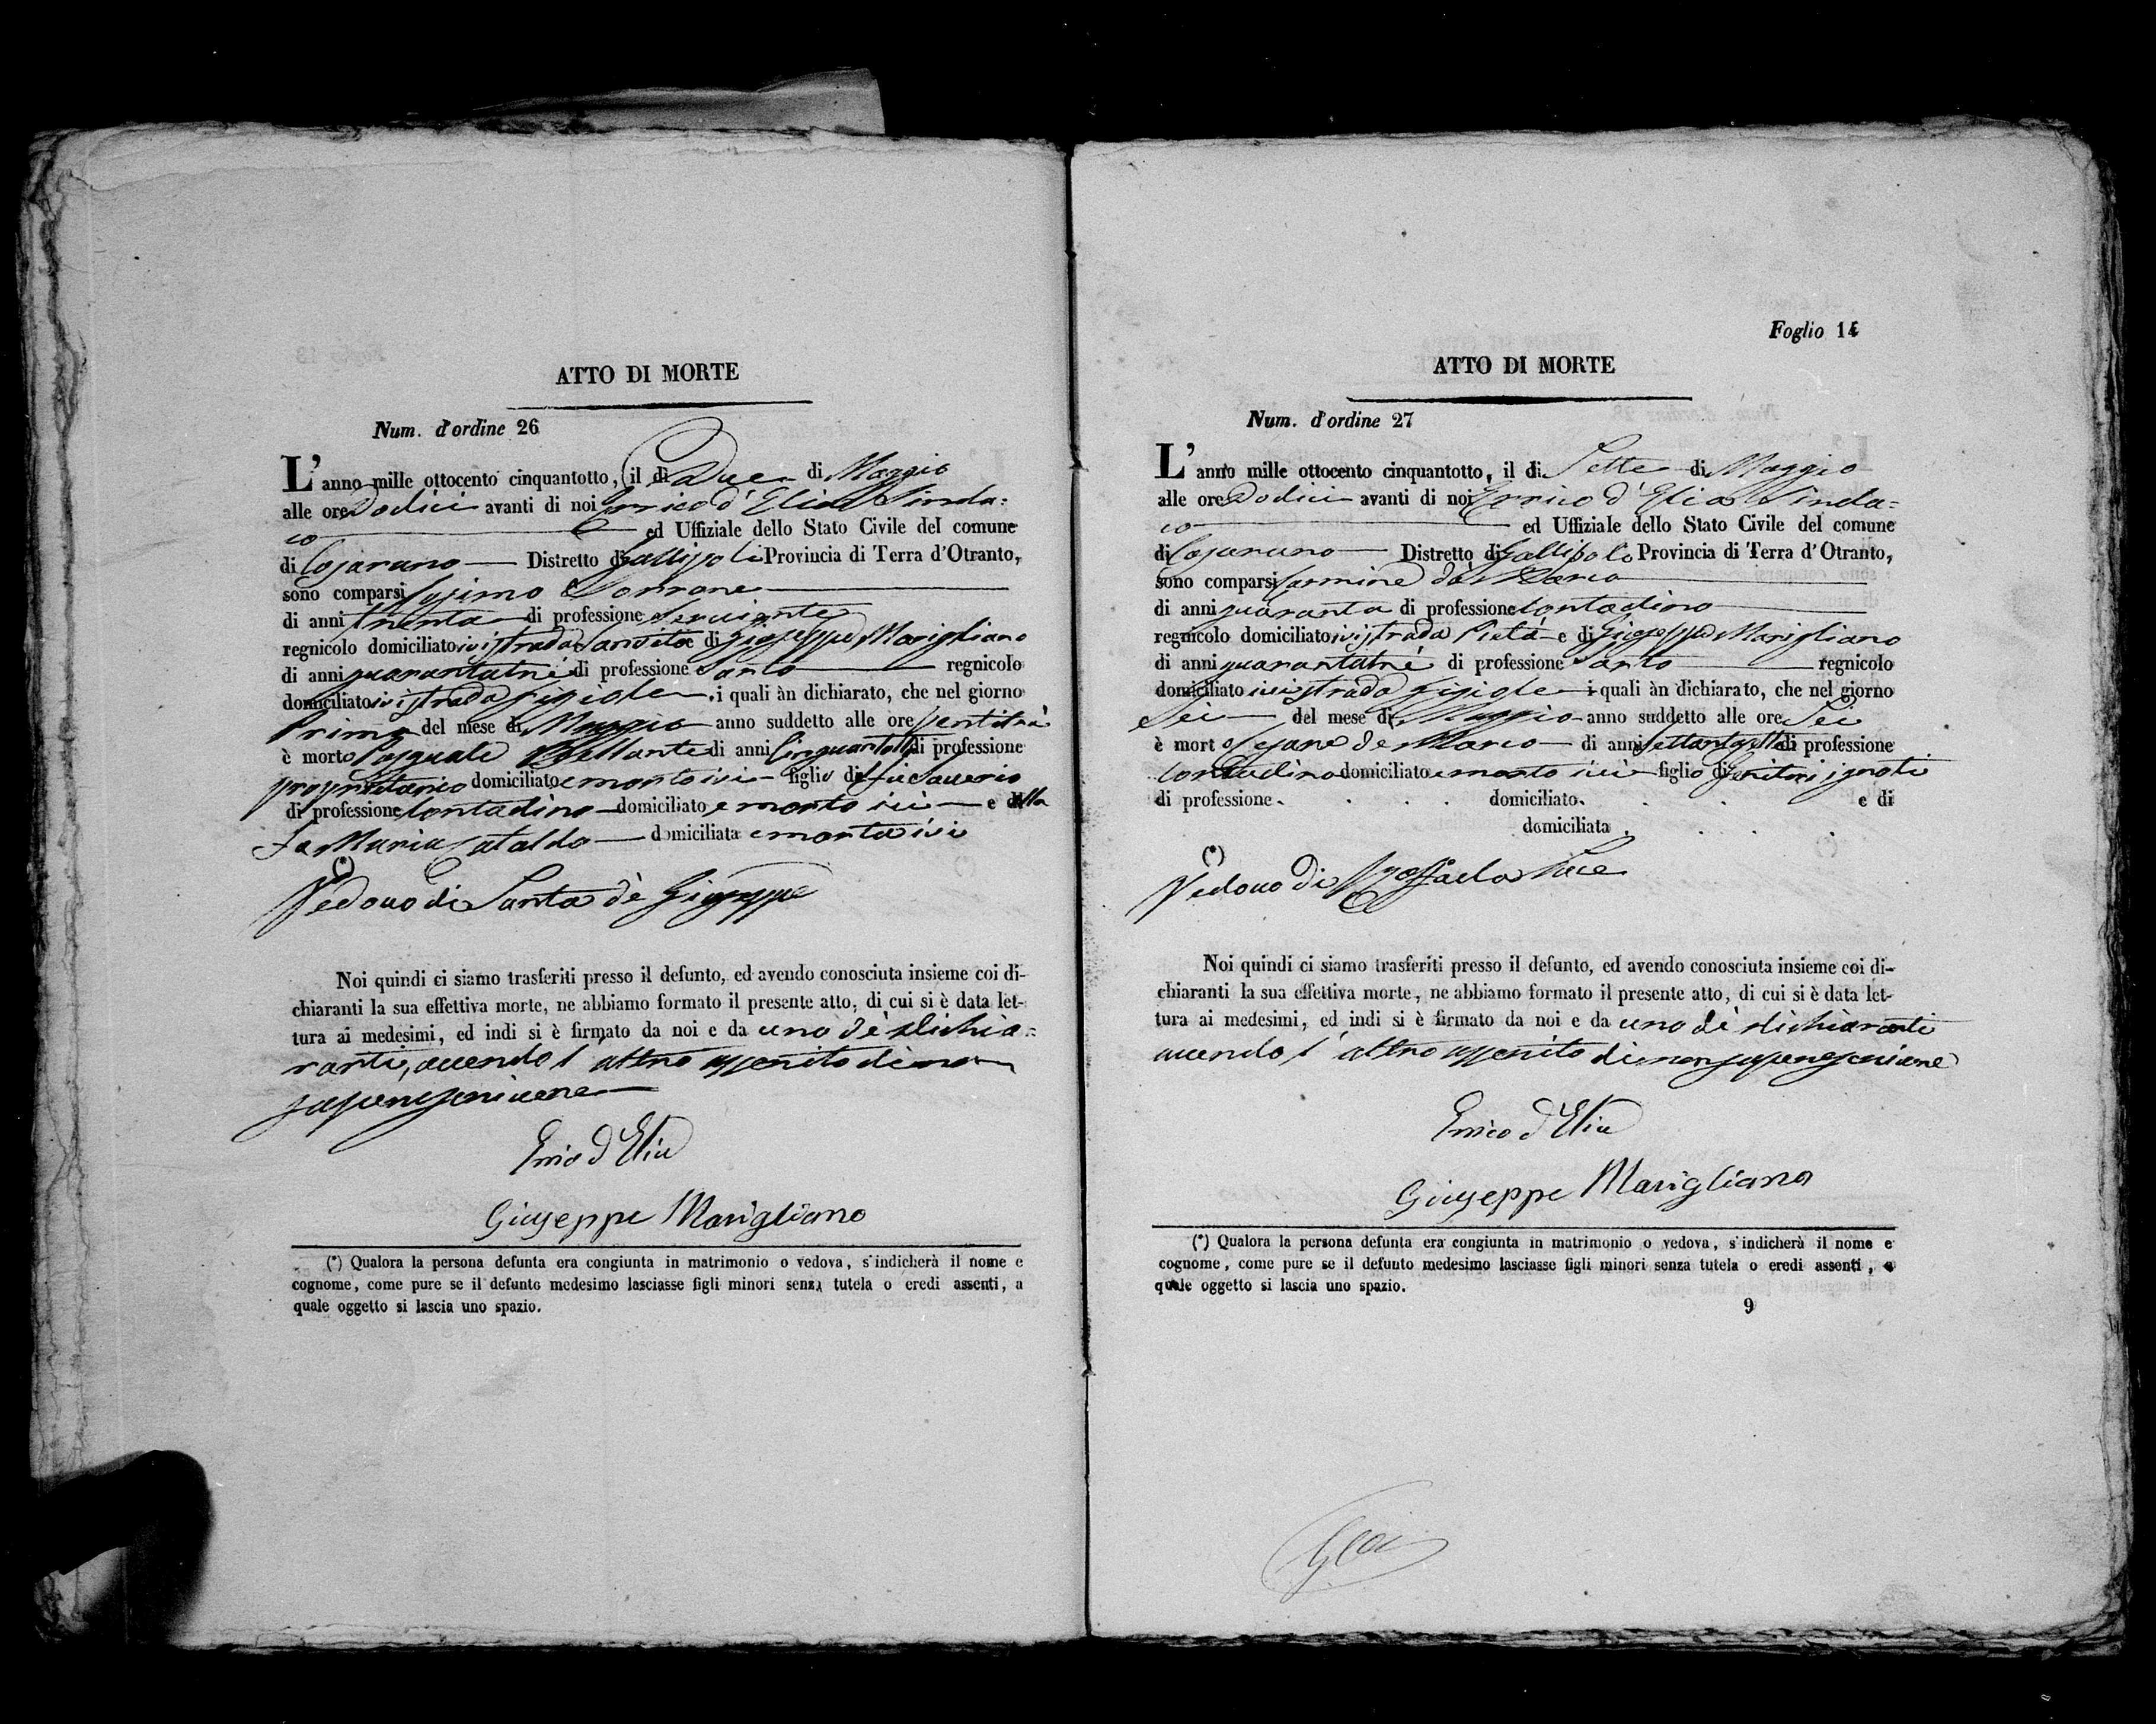 ATTO DI MORTE
Num. d'ordine 26
L'anno mille ottocento cinquantotto, il dì Due di Maggio
alle ore Dodici avanti di noi Errico d'Elia Sinda=
co ed Uffiziale dello Stato Civile del comune
di Casarano Distretto di Gallipoli Provincia di Terra d'Otranto,
sono comparsi
di anni trenta di professione Serviente
regnicolo domiciliato ivi strada e di Giuseppe Marigliano
di anni quarantatrè di professione Sarto regnicolo
domiciliato ivi strada i quali àn dichiarato, che nel giorno
Primo del mese di Maggio anno suddetto alle ore ventitrè
è morto Pasquale di anni di professione
proprietario domiciliato e morto ivi figlio di fu Saverio
di professione Contadino domiciliato e morto ivi e della
fu Maria Cataldo domiciliata e morta ivi
(*)
Vedovo di Santa de Giuseppe
Noi quindi ci siamo trasferiti presso il defunto, ed avendo conosciuta insieme coi di-
chiaranti la sua effettiva morte, ne abbiamo formato il presente atto, di cui si è data let-
tura ai medesimi, ed indi si è firmato da noi e da uno dè dichia=
ranti, avendo l'altro asserito di non
saper scrivere
Errico d'Elia
Giuseppe Marigliano
(*) Qualora la persona defunta era congiunta in matrimonio o vedova, s'indicherà il nome e
cognome, come pure se il defunto medesimo lasciasse figli minori senza tutela o eredi assenti, a
quale oggetto si lascia uno spazio.
Foglio 14
ATTO DI MORTE
Num. d'ordine 27
L'anno mille ottocento cinquantotto, il dì Sette di Maggio
alle ore Dodici avanti di noi Errico d'Elia Sinda=
co ed Uffiziale dello Stato Civile del comune
di Casarano Distretto di Gallipoli Provincia di Terra d'Otranto,
sono comparsi Carmine de Marco
di anni quaranta di professione Contadino
regnicolo domiciliato ivi strada Pietà e di Giuseppe Marigliano
di anni quarantatrè di professione Sarto regnicolo
domiciliato ivi strada i quali àn dichiarato, che nel giorno
Sei del mese di Maggio anno suddetto alle ore Sei
è morto de Marco di anni di professione
Contadino domiciliato e morto ivi figlio di Genitori ignoti
di professione . . . . domiciliato . . . e di
domiciliata . . . .
(*)
Vedovo di Raffaela Luce
Noi quindi ci siamo trasferiti presso il defunto, ed avendo conosciuta insieme coi di-
chiaranti la sua effettiva morte, ne abbiamo formato il presente atto, di cui si è data let-
tura ai medesimi, ed indi si è firmato da noi e da uno dè dichiaranti
avendo l'altro asserito di non saper scrivere
Errico d'Elia
Giuseppe Marigliano
(*) Qualora la persona defunta era congiunta in matrimonio o vedova, s'indicherà il nome e
cognome, come pure se il defunto medesimo lasciasse figli minori senza tutela o eredi assenti, a
quale oggetto si lascia uno spazio.
9